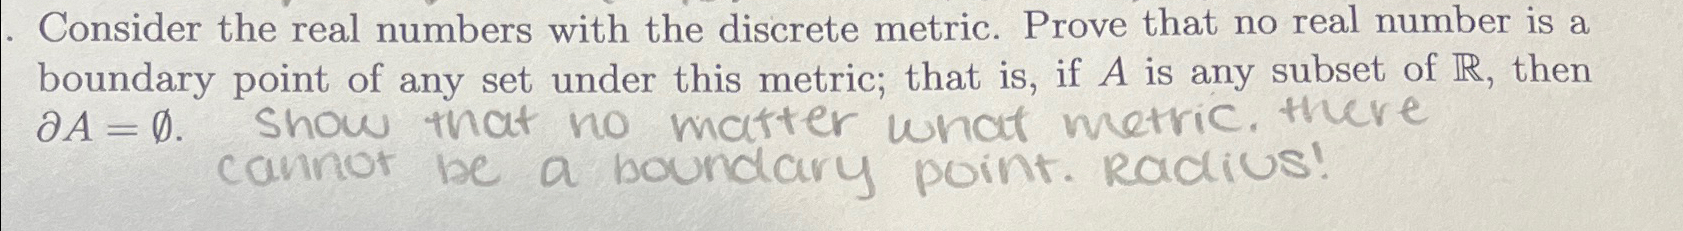 . Consider the real numbers with the discrete metric. Prove that no real number is a
boundary point of any set under this metric; that is, if A is any subset of ℝ, then
∂A = ∅. Show that no matter what metric, there
cannot be a boundary point. Radius!